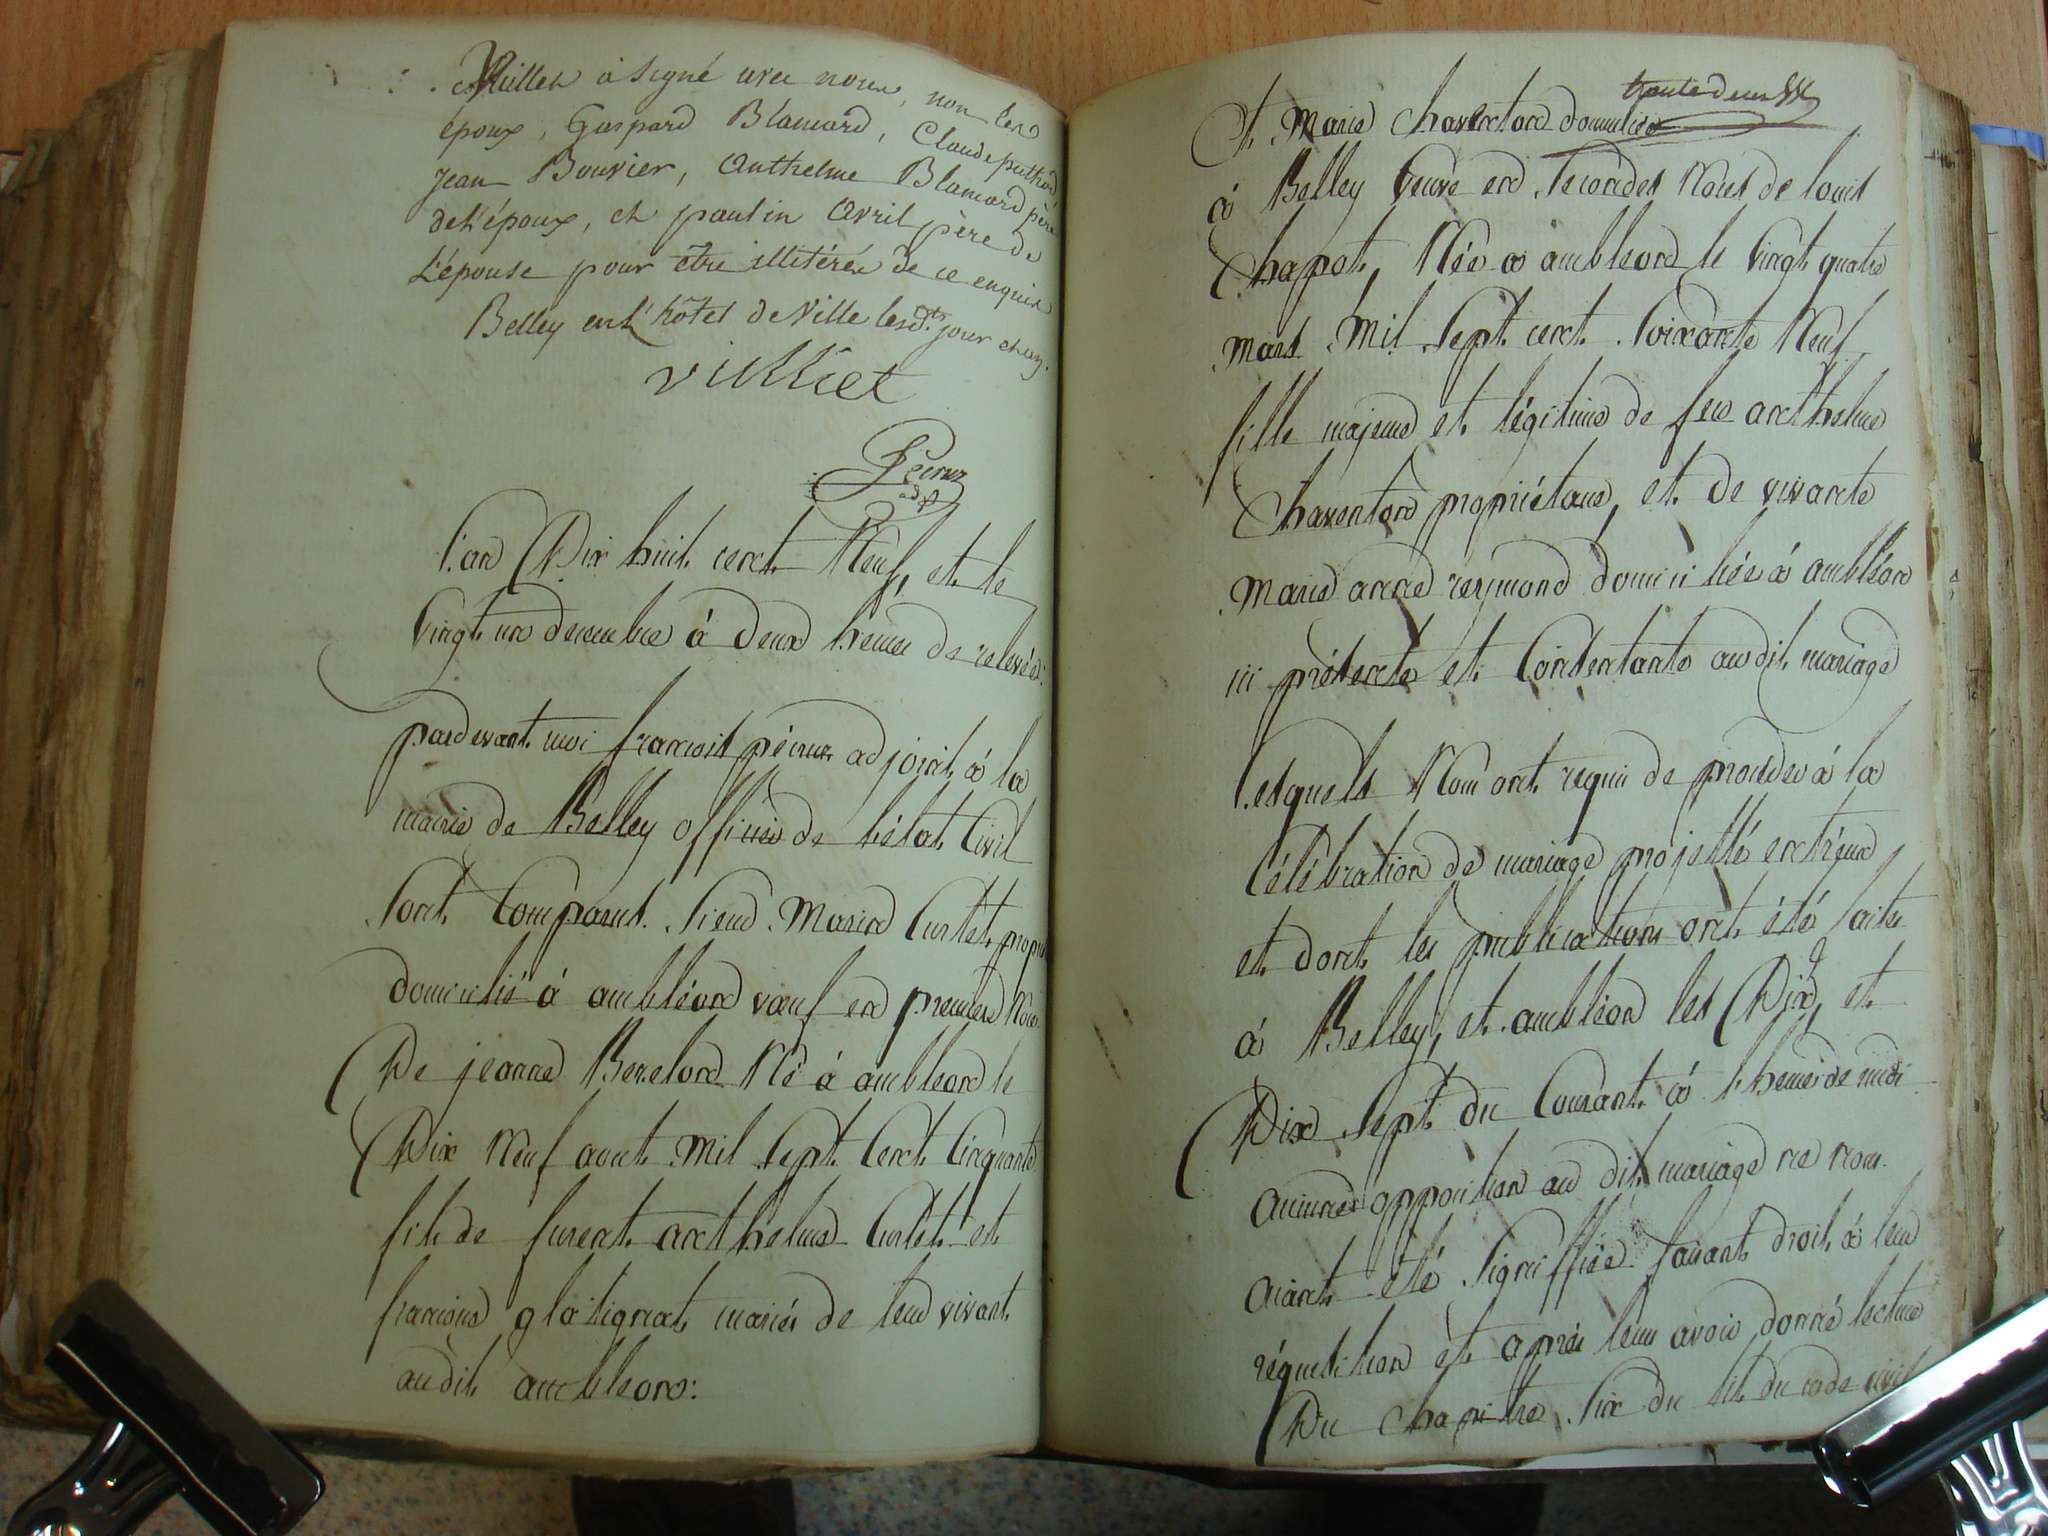 Vulliet a signé avec nous, non les
époux, Gaspard Blancard, Claude
Jean Bouvier, Anthelme Blancard père
de l'époux, et paulin Avril père de
L'épouse pour être illitérés de ce enquis
Belley en l'hôtel de Ville lesdts jour et an.
Vulliet
Pécour
adjt
L'an Dix huit cent Neuf, et le
Vingt un decembre à deux heures de relevée
pardevant moi francois pécour adjoint à la
mairie de Belley officier de l'état Civil
Sont Comparus Sieur Marin Curtet, propre
domicilié à ambléon vœuf en premiere Noce
De jeanne Berelord Né à ambleon le
Dix Neuf aout Mil Sept Cent Cinquante
fils de furent anthelme Curtet et
francoise glatignat mariés de leur vivant
au dit ambleon:
trente deux
Et Marie Chaventon domiciliée
à Belley veuve en Secondes Noces de louis
Chapot, Née à ambleon le Vingt quatre
mars Mil Sept cent Soixante Neuf
fille majeure et légitime de feu anthelme
Chaventon propriétaire, et de vivante
Marie anne reymond domiciliée à ambléon
ici présente et Consentante au dit mariage
Lesquels Nous ont requis de procéder à la
Célébration de mariage projetté entr'eux
et dont les publications ont été faites
à Belley, et ambléon les Dix, et
Dix Sept du Courant à l'heure de midi
Aucune opposition au dit mariage ne nous
aiant été Signiffiée faisant droit à leur
réquisition et après leur avoir donné lecture
Du chapitre Six du tit. du code civil